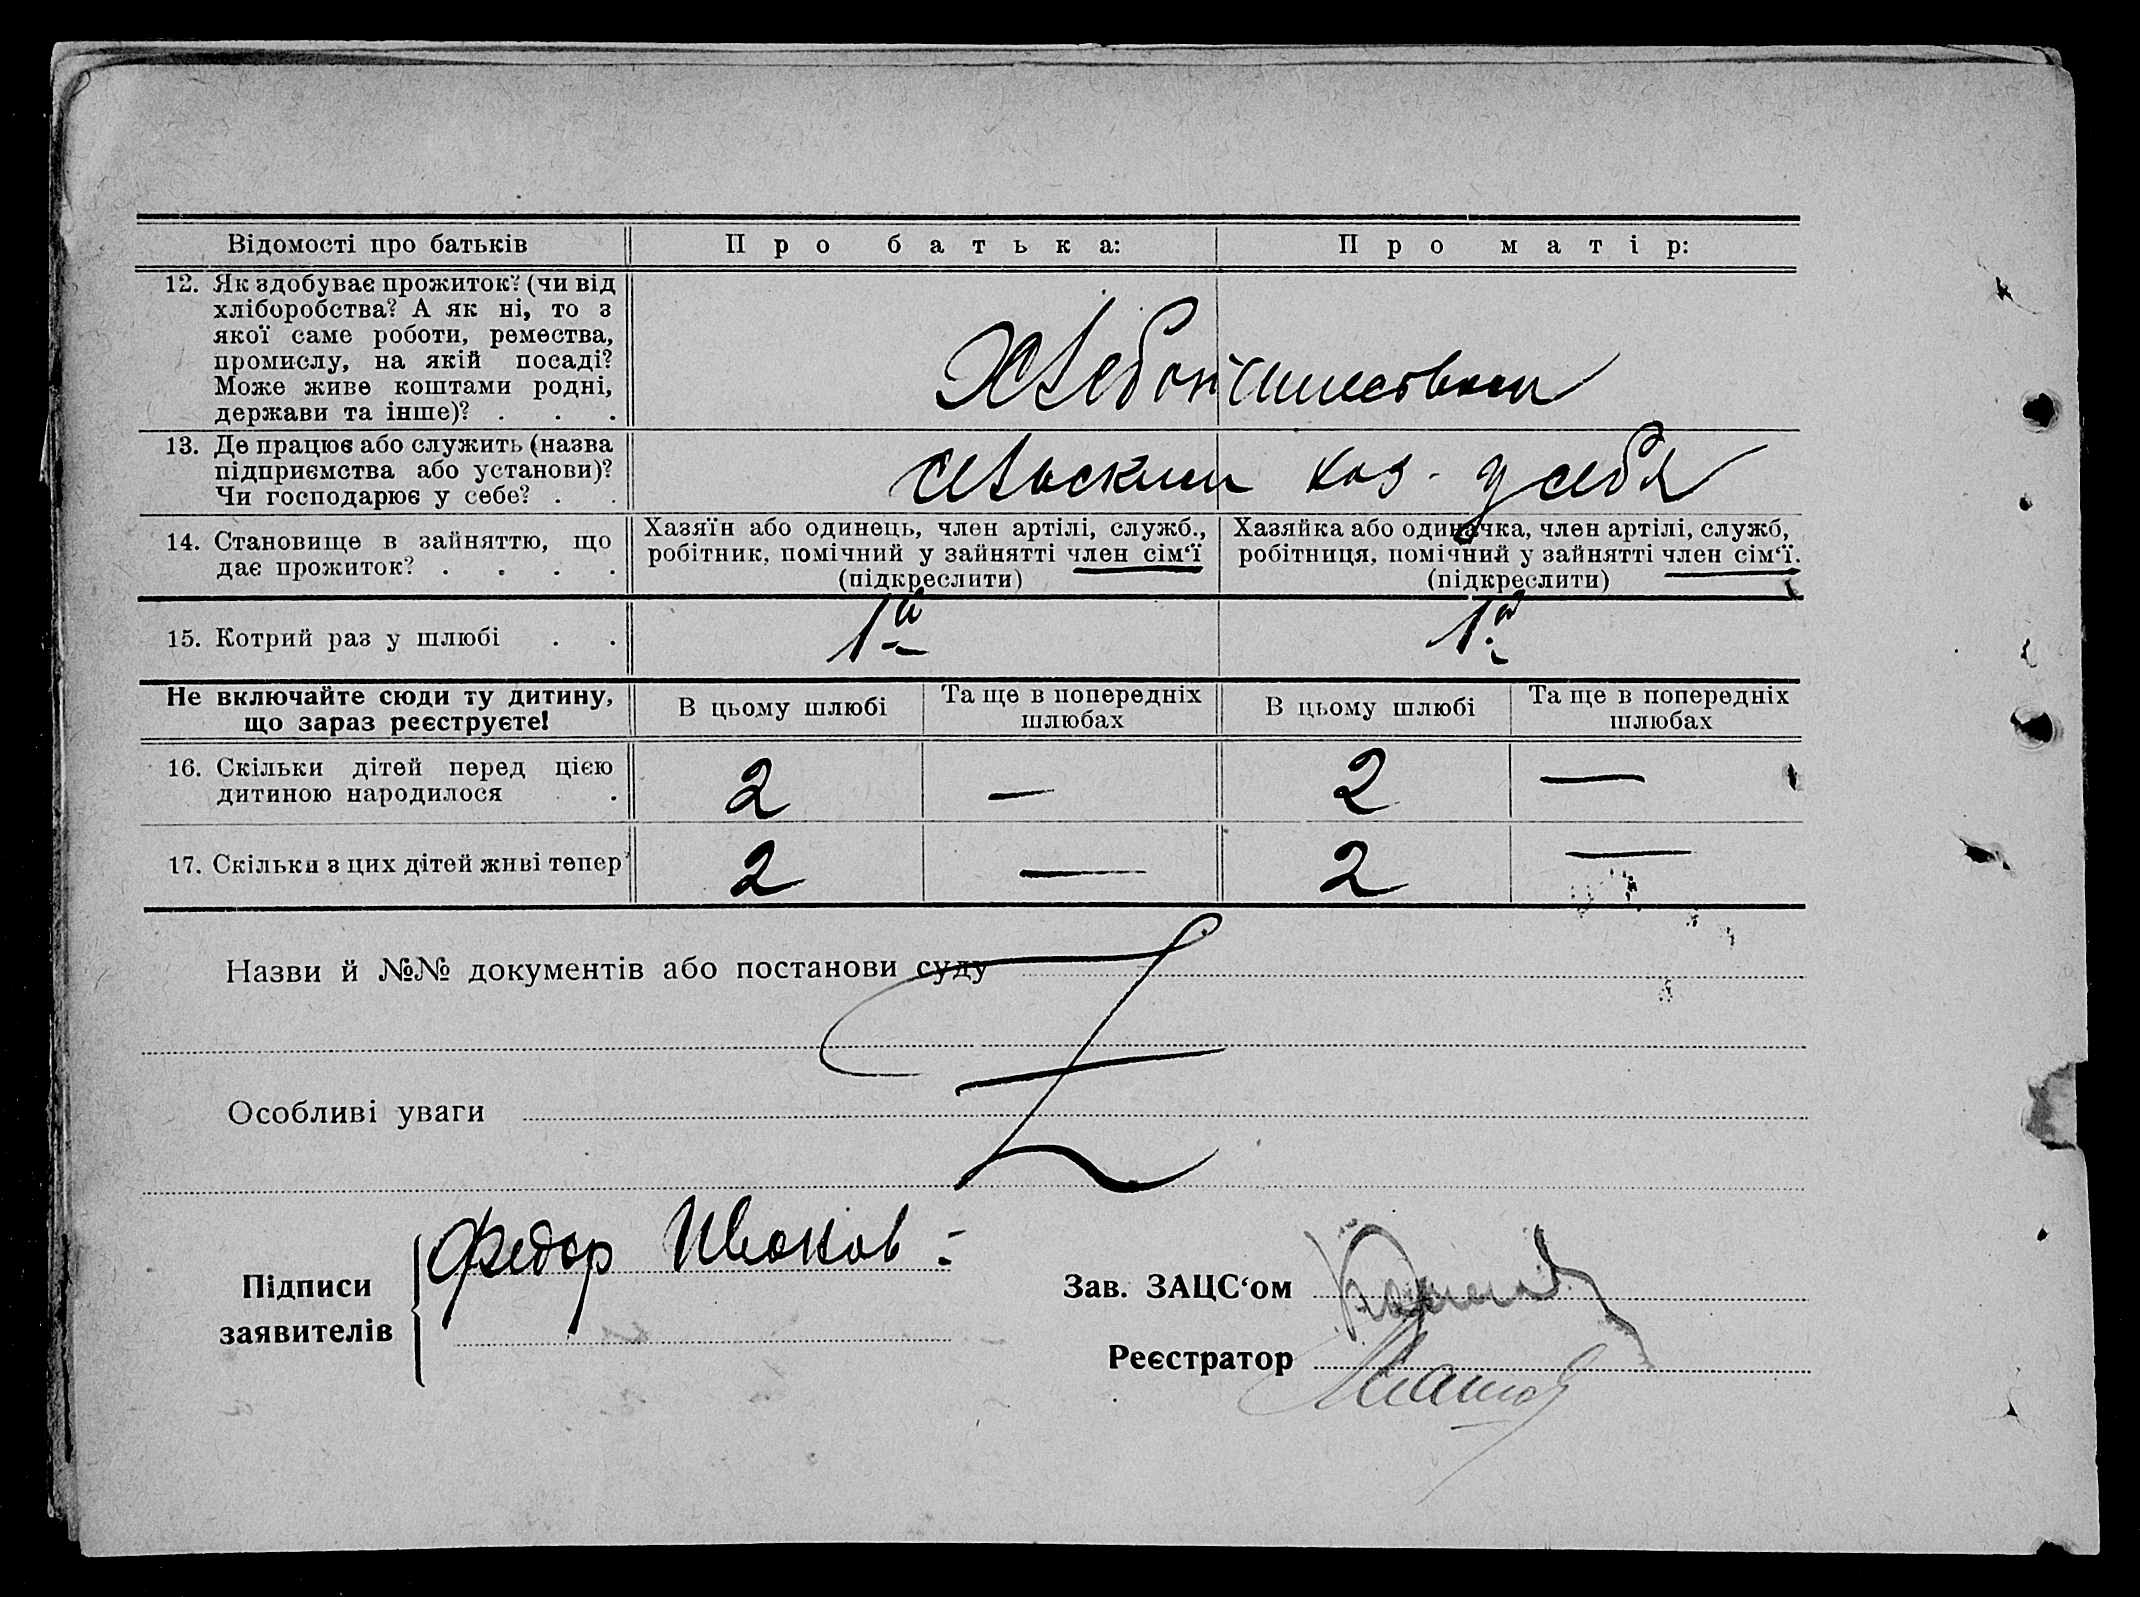 Відомості про батьків Про батька: Про матір:
12. Як здобуває прожиток? (чи від
хліборобства? А як ні, то з
якої саме роботи, ремества,
промислу, на якій посаді?
Може живе коштами родні,
держави та інше)? . . .
13. Де працює або служить (назва
підприємства або установи)?
Чи господарює у себе? . .
сельским хоз - у себя
14. Становище в зайняттю, що
дає прожиток? . . . .
Хазяїн або одинець, член артілі, служб.,
робітник, помічний у зайнятті член сім‘ї
(підкреслити)
Хазяйка або одиначка, член артілі, служб,
робітниця, помічний у зайнятті член сім‘ї.
(підкреслити)
15. Котрий раз у шлюбі . . 1й 1й
Не включайте сюди ту дитину,
що зараз реєструєте!
В цьому шлюбі
Та ще в попередніх
шлюбах
В цьому шлюбі
Та ще в попередніх
шлюбах
16. Скільки дітей перед цією
дитиною народилося .
2 — 2 —
17. Скільки з цих дітей живі тепер 2 — 2 —
Назви й №№ документів або постанови суду
Особливі уваги
Підписи
заявителів
Федор Иванов
Зав. ЗАЦС‘ом
Реєстратор